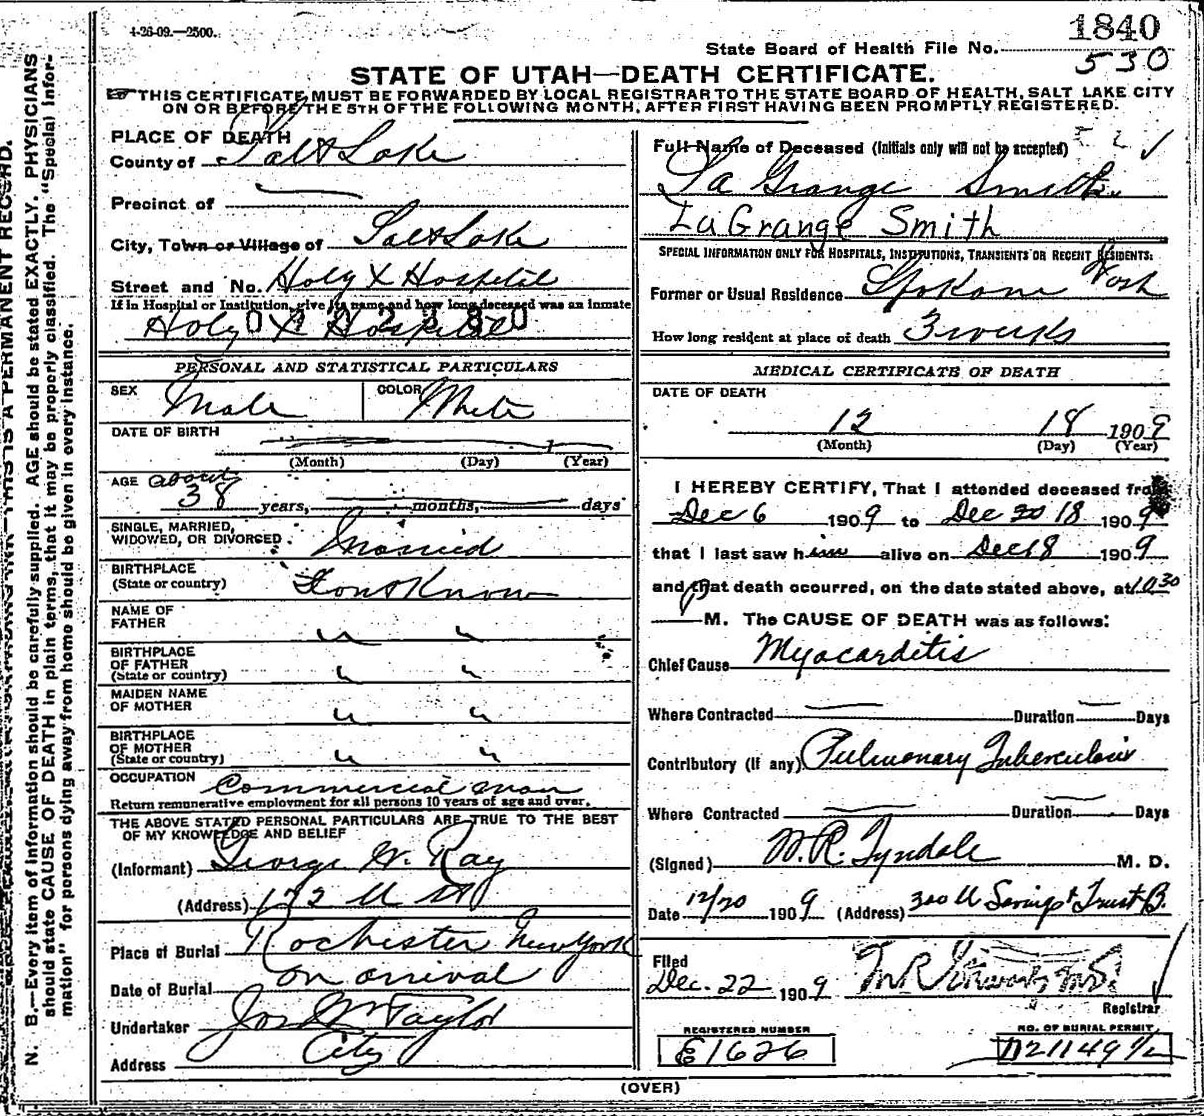 4-26-09.—2500.
1840
State Board of Health File No. 530
STATE OF UTAH—DEATH CERTIFICATE.
THIS CERTIFICATE MUST BE FORWARDED BY LOCAL REGISTRAR TO THE STATE BOARD OF HEALTH, SALT LAKE CITY
ON OR BEFORE THE 5TH OF THE FOLLOWING MONTH, AFTER FIRST HAVING BEEN PROMPTLY REGISTERED.
N. B.—Every item of information should be carefully supplied. AGE should be stated EXACTLY. PHYSICIANS
should state CAUSE OF DEATH in plain terms, that it may be properly classified. The "Special Infor-
mation" for persons dying away from home should be given in every instance.
PLACE OF DEATH
County of Salt Lake
Precinct of
City, Town or Village of Salt Lake
Street and No. Holy X Hospital
If in Hospital or Institution, give its name and how long deceased was an inmate
Holy X Hospital
PERSONAL AND STATISTICAL PARTICULARS
SEX Male COLOR White
DATE OF BIRTH
(Month) (Day) (Year)
AGE about 38 years, months, days
SINGLE, MARRIED,
WIDOWED, OR DIVORCED Married
BIRTHPLACE
(State or country) Dont Know
NAME OF
FATHER " "
BIRTHPLACE
OF FATHER
(State or country) " "
MAIDEN NAME
OF MOTHER " "
BIRTHPLACE
OF MOTHER
(State or country) " "
OCCUPATION Commercial man
Return remunerative employment for all persons 10 years of age and over.
THE ABOVE STATED PERSONAL PARTICULARS ARE TRUE TO THE BEST
OF MY KNOWLEDGE AND BELIEF
(Informant) George W. Ray
(Address) 172 U St
Place of Burial Rochester New York
Date of Burial on arrival
Undertaker Jos Wm Taylor
Address City
Full Name of Deceased (Initials only will not be accepted)
La Grange Smith
LaGrange Smith
SPECIAL INFORMATION ONLY FOR HOSPITALS, INSTITUTIONS, TRANSIENTS OR RECENT RESIDENTS:
Former or Usual Residence Spokane Wash
How long resident at place of death 3 weeks
MEDICAL CERTIFICATE OF DEATH
DATE OF DEATH
12 18 1909
(Month) (Day) (Year)
I HEREBY CERTIFY, That I attended deceased from
Dec 6 1909 to Dec 20 18 1909
that I last saw him alive on Dec 18 1909
and that death occurred, on the date stated above, at 10 30
P M. The CAUSE OF DEATH was as follows:
Chief Cause Myocarditis
Where Contracted Duration Days
Contributory (if any) Pulmonary Tuberculosis
Where Contracted Duration Days
(Signed) W. R. Tyndale M. D.
Date 12/20 1909 (Address) 300 U Savings & Trust B.
Filed
Dec. 22 1909
Registrar
REGISTERED NUMBER
E1626
NO. OF BURIAL PERMIT
(OVER)